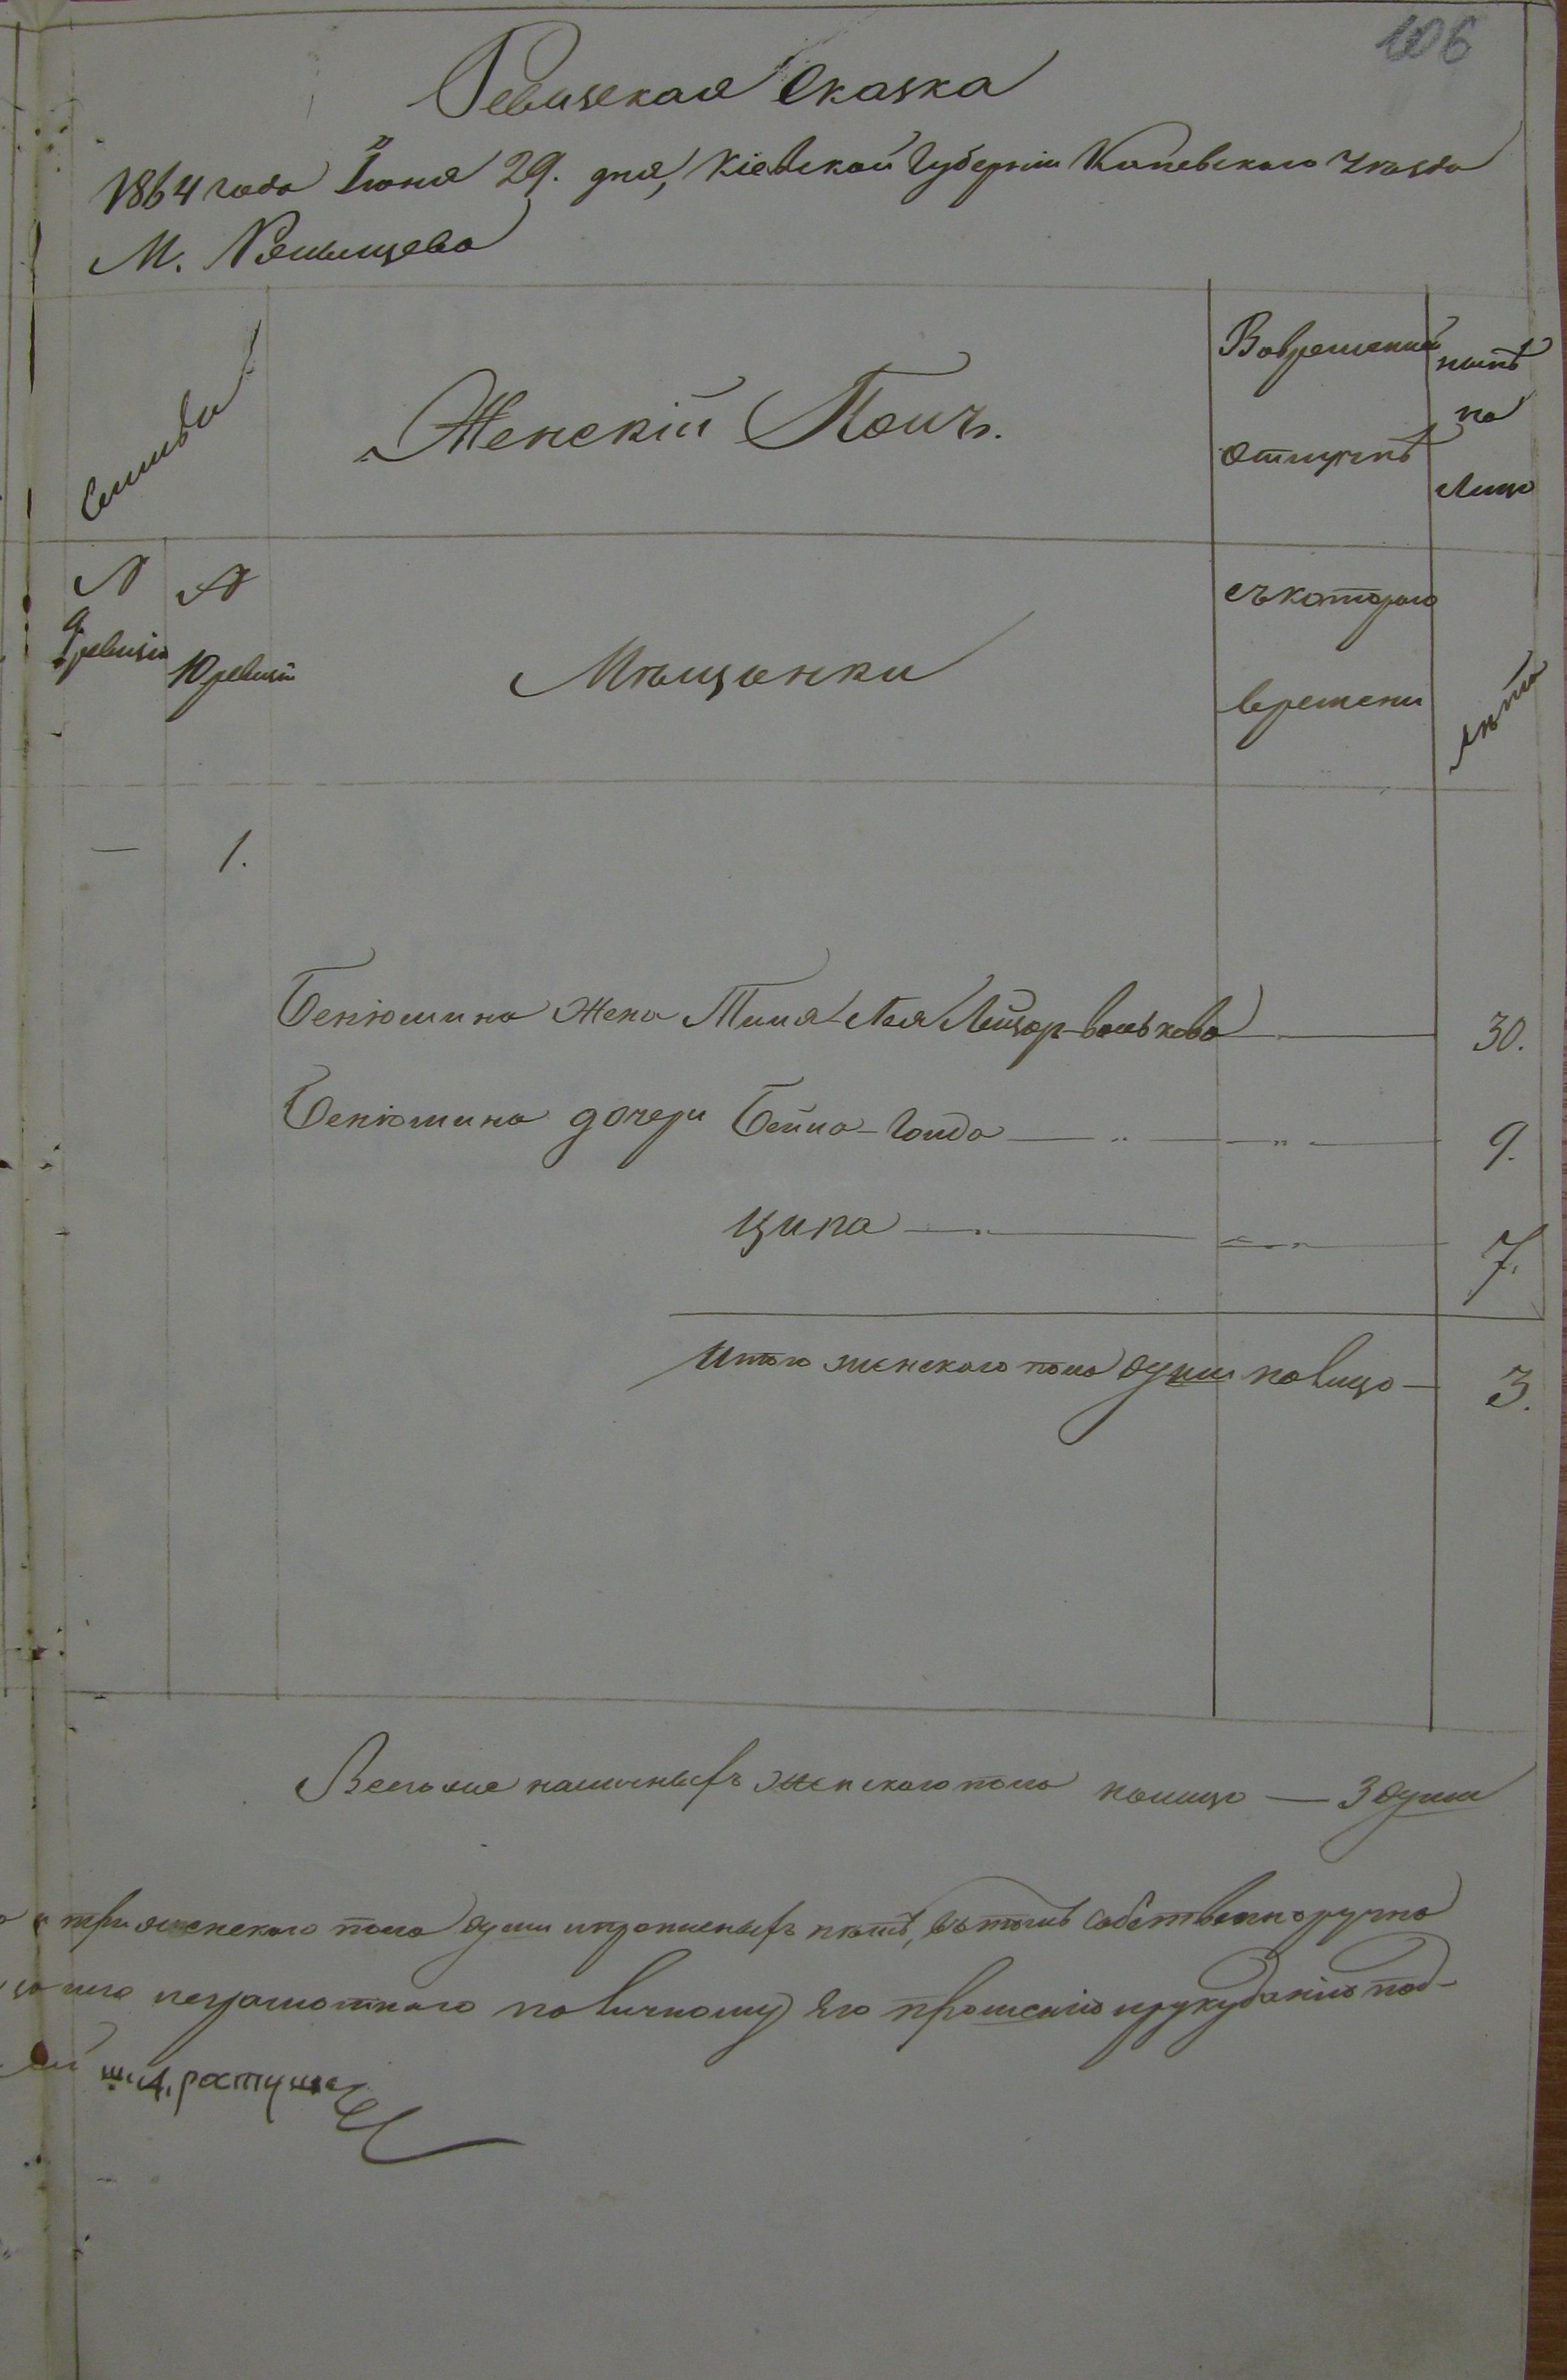 106
Ревизская Сказка
1864 года Іюня 29. дня, Кіевской Губерніи Каневскаго Уѣзда
М. Ржищева
Семьи
Женскій Полъ.
Во временной отлучкѣ
нынѣ на лицо
№ 9 ревизіи
№ 10 ревизіи
Мѣщанки
съ котораго времени
лѣта
— 1.
Беніомина жена Лея Лейзор-Волькова — 30.
Беніомина дочери Бейла-Голда — „ — „ — 9.
Ципа — „ — „ — 7.
Итого женскаго пола души на лицо — 3.
Всего же наличныхъ женскаго пола на лицо — 3 души
три женскаго пола души и прописныхъ нѣтъ, въ томъ собственноручно
неграмотнаго по личному его прошенію и рукуданію под-